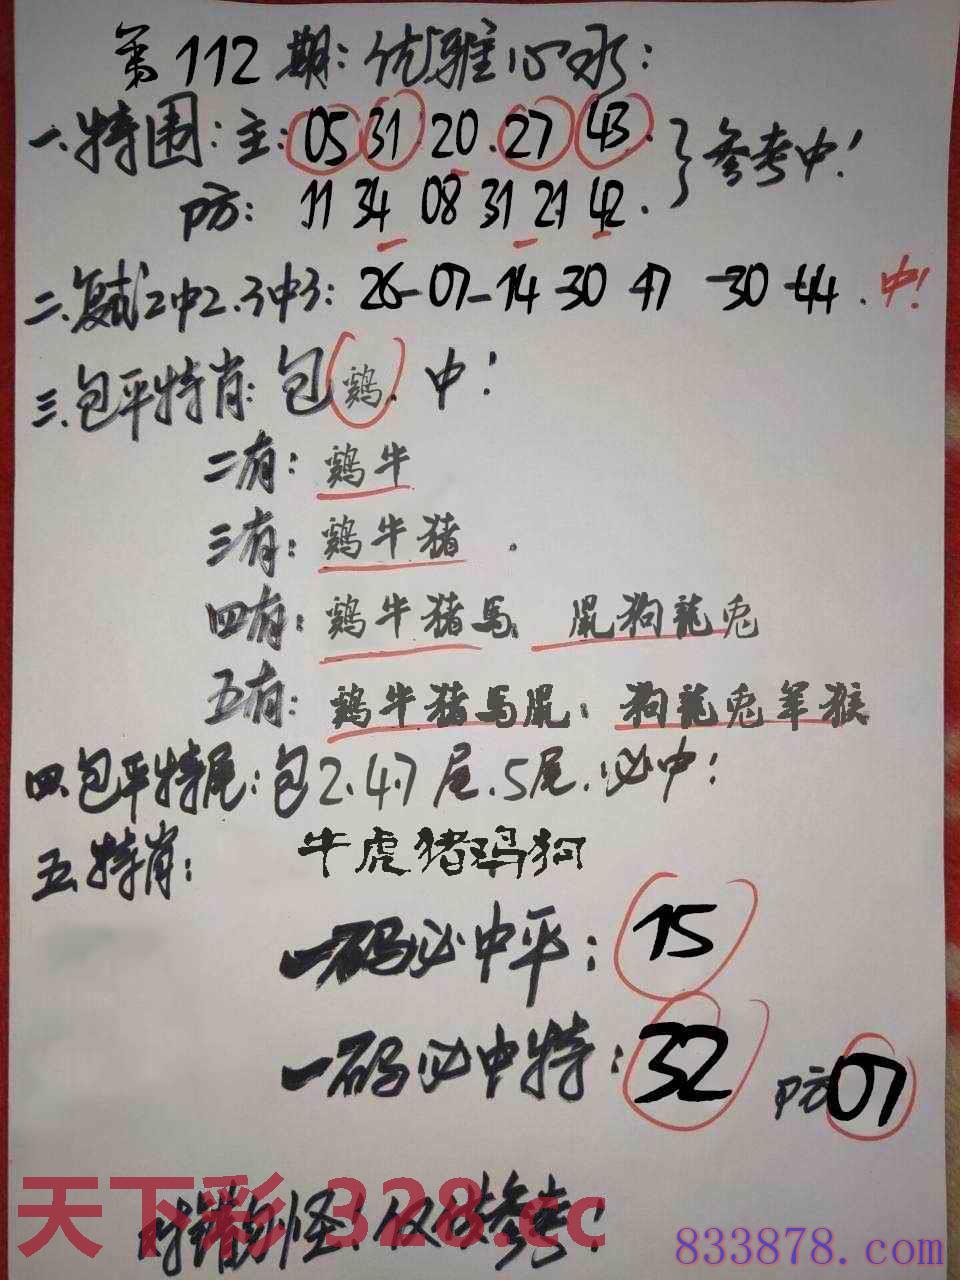 第112期：优雅心水：
一、特围：主：05 31 20.27 43. 参考中！
防：11 34 08 31 21 42.
二、复式2中2.3中3：26-07-14-30 47 -30-44. 中！
三、包平特肖：包鷄. 中！
二有：鷄牛
三有：鷄牛猪.
四有：鷄牛猪馬、鼠狗龍兔
五有：鷄牛猪馬鼠：狗龍兔羊猴
四.包平特尾：包2.4.7尾.5尾.必中！
五、特肖： 牛虎猪鸡狗
一码必中平：15
一码必中特：32 防07
天下彩 328.cc
对错勿怪！仅供参考！
833878.com